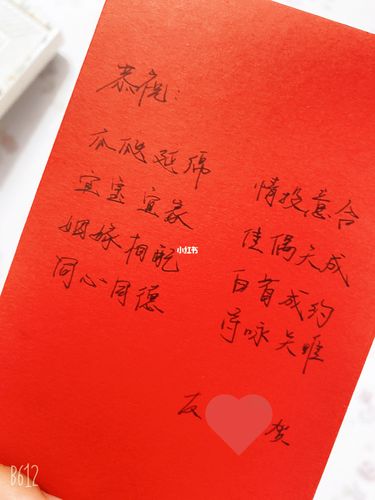 恭祝：
瓜瓞延绵
宜室宜家
姻缘相配
同心同德
情投意合
佳偶天成
白首成约
诗咏关雎
友 贺
小红书
B612